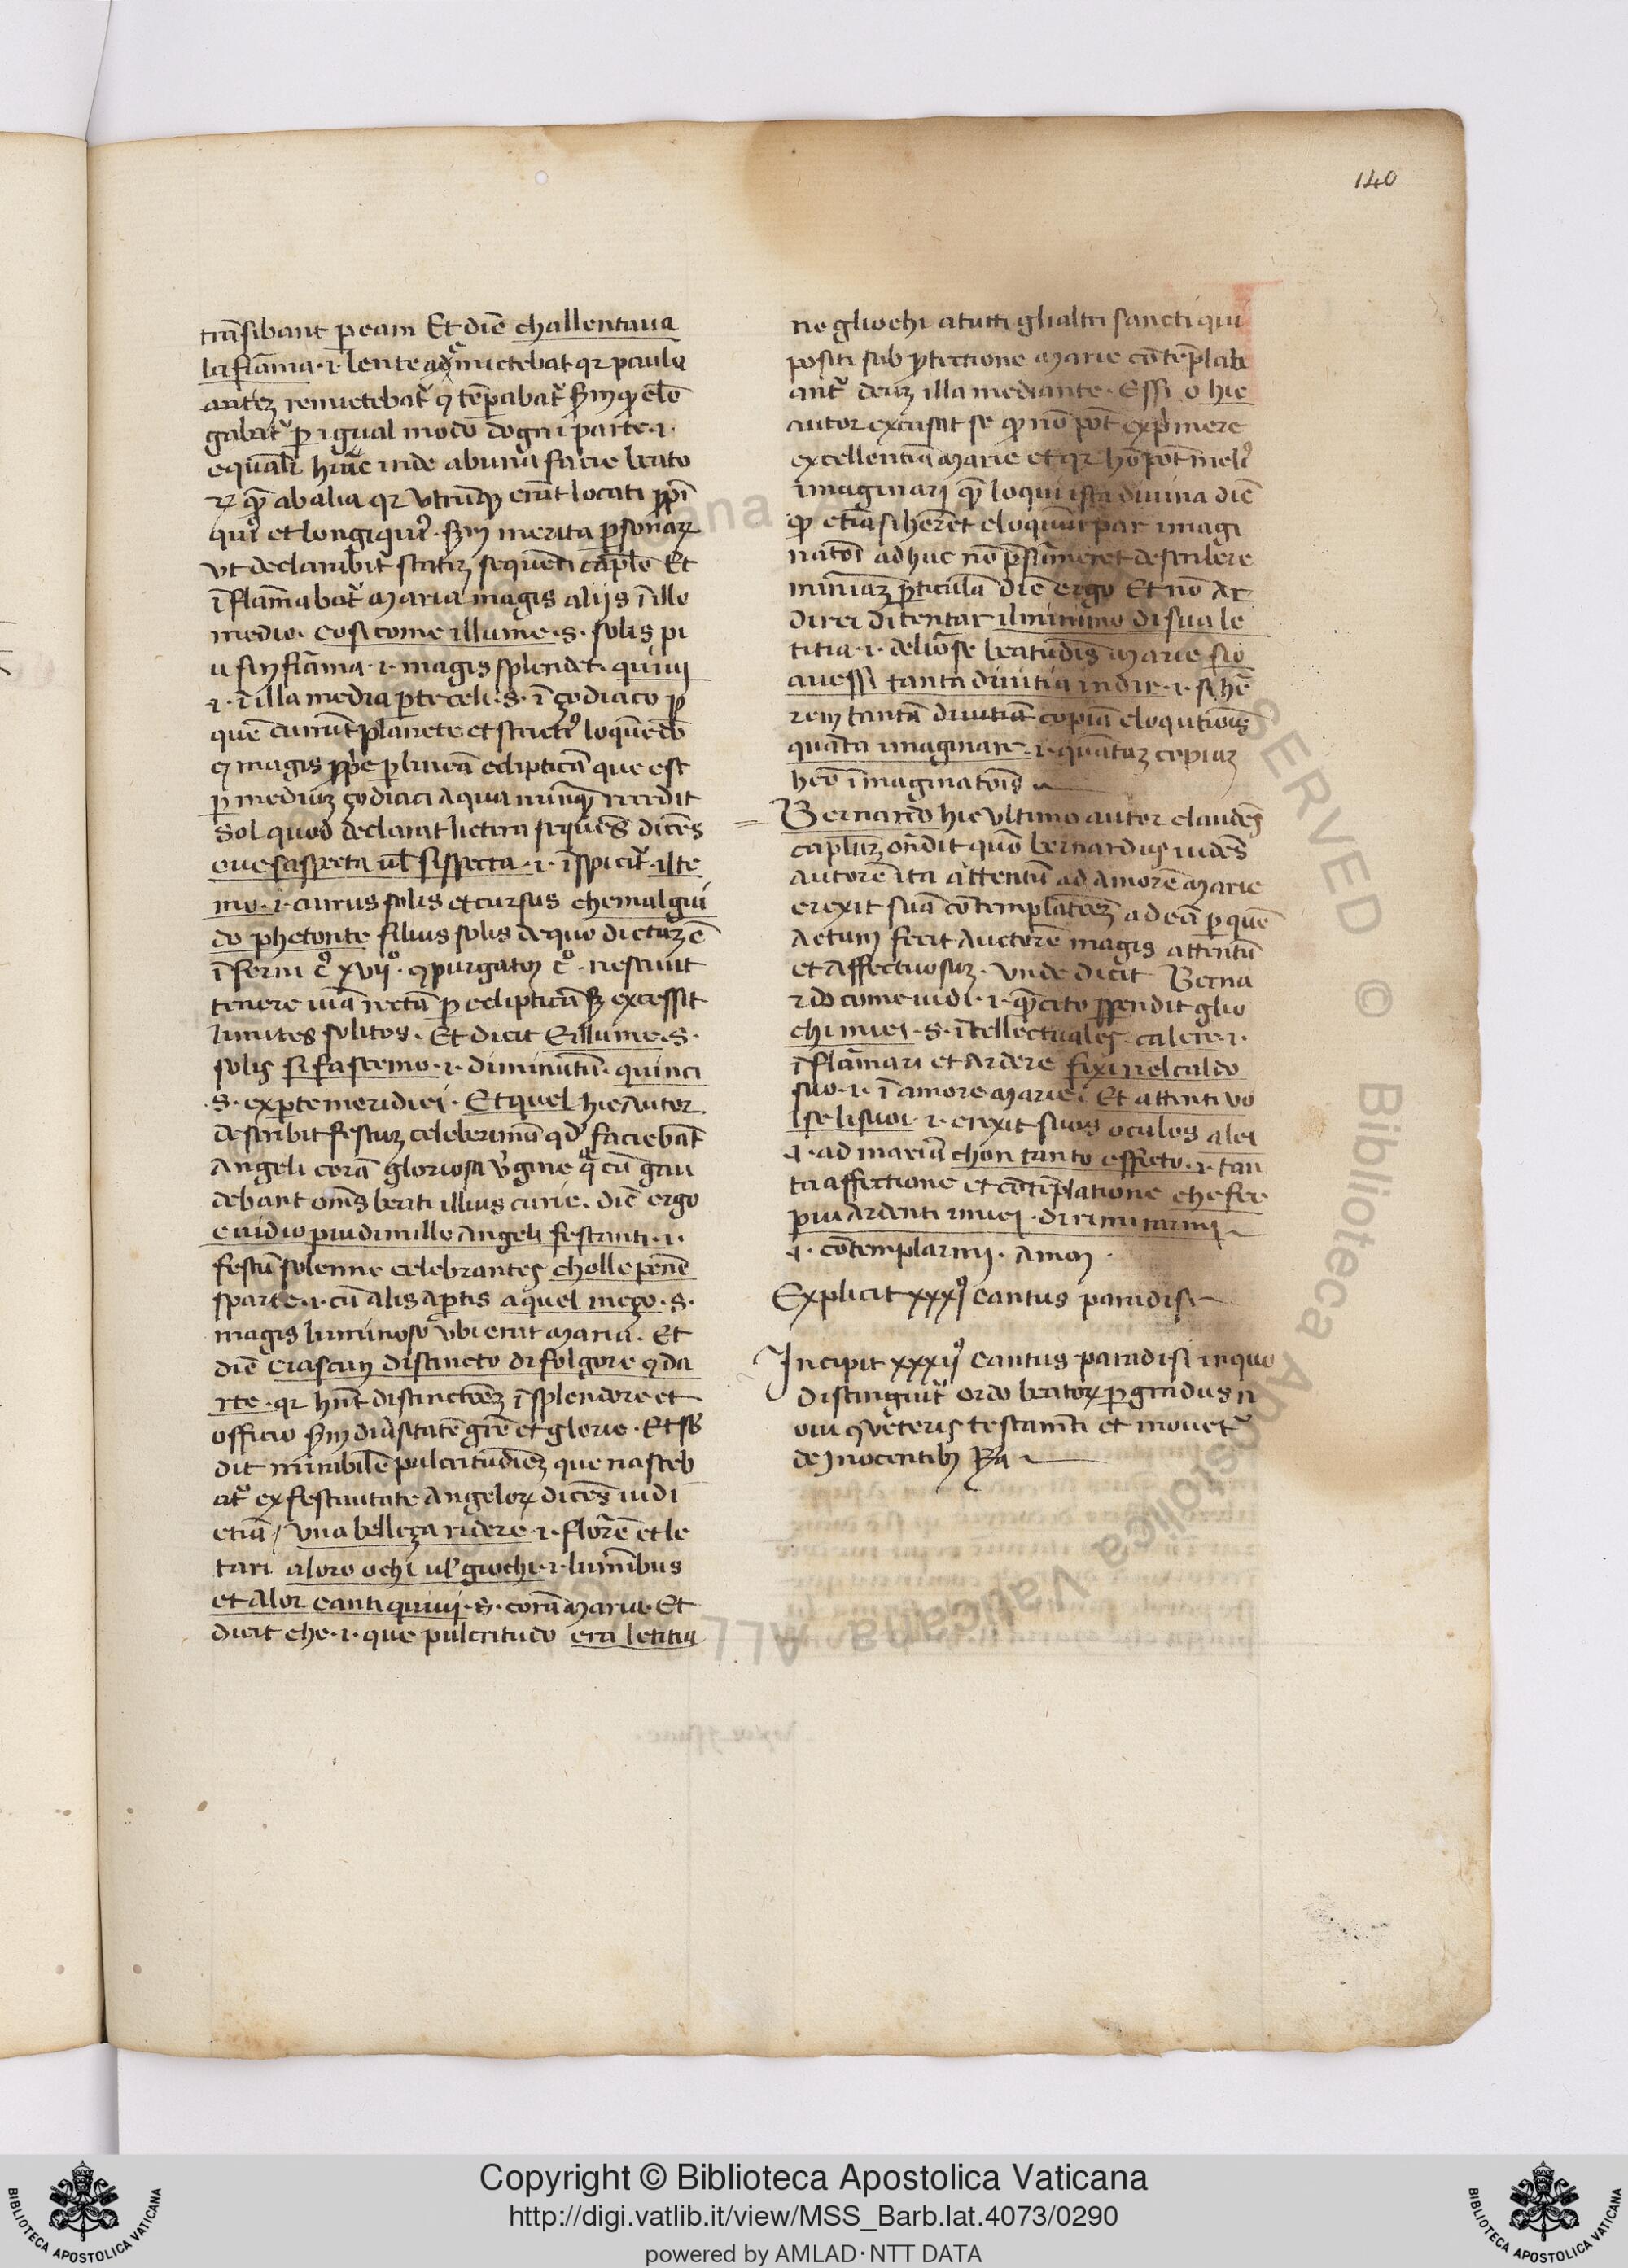 140
trāsibant p eam Et diē challentaua
la fiāma .i. lente admictebat qr paula
antez remictebat᷑ ꝯ tēpabat᷑
gabat᷑ p igual modo dogni parte .i.
equalr hinc inde ab una facie beato
rꝝ qꝫ ab alia qr utrūqꝫ erāt locati ꝓpī
qui᷑ et longiqui᷑ . scdm merita psonaꝝ
vt declarabit statiz sequēti caplo Et
īflāmabat᷑ maria magis aliis ī illo
medio . cosi come illume .s. solis pi
u sin fiāma .i. magis splendet . quiui
.i. ī illa media pte celi .s. ī zodiaco p
quē currūt planete et stricti᷑ loquēdo
ꝯ magis ꝓpe p lineā eclipticā que est
p mediuz zodiaci a qua nunqꝫ recedit
sol quod declarat lictera sequēs dicēs
oue saspecta ul sispecta .i. īspicit᷑ il te
mo .i. currus solis et cursus che mal gui
do phetonte filius solis de quo dictuz ē
īferni c° xvij° . ꝯ purgatorij c° . nesciuit
tenere uiā rectā p eclipticā sꝫ excessit
limites solitos . Et dicit E illume .s.
solis si fa scemo .i. diminutū . quinci
.s. ex pte meridiei . Et quel hic autor
describit festuz celeberimū qd᷑ faciebāt
angeli corā gloriosa v᷑gine q̄ cū gau
debant oms beati illius curie . diē ergo
e uidio piu di mille angeli festanti .i.
festū solenne celebrantes cholle penne
sparte .i. cū alis aptis a quel mezo .s.
magis luminoso ubi erat maria . Et
diē ciascun distincto di folgore ꝯ da
rte . qr hnt distinctōez ī splendore et
officio scdm diu᷑sitatē grē et glorie . Et
dit mirabilē pulcritudiēz que nasceb
at᷑ ex festiuitate angeloꝝ dicēs uidi
etiā / una belleza ridere .i. florē et le
tari a loro ochi ul giochi .i. luminibus
et alor canti quiui .s. corā maria . Et
dicit che .i. que pulcritudo era letitia
ne gliochi a tutti glialtri sancti qui
positi sub ꝓtectione marie contēplab
ant᷑ deuz illa mediante . Essi o hic
autor excusat se qꝫ nō pōt exprimere
excellentiā marie et qr hō pōt meli᷑
imaginari qꝫ loqui ista diuina diē
qꝫ etiā si herēt eloquiū par imagi
natōi adhuc nō psūmeret describere
minimāz pticulā diē ergo Et nō ar
direi di tentar il minimo di sua le
titia .i. deliciose beatudis marie sio
auessi tanta diuitia in dir .i. si hē
rem tantā diuitiāt copiā eloqutiōis
quāta imaginare .i. quātaz copiaz
heo ī maginatōis
Bernardo hic ultimo autor claudēs
capluz ondit quō bernardus uidēs
autorē ita attentū ad amorē marie
erexit suā contemplatōez ad eā p quē
actum fecit auctorē magis attentū
et affectuosuz . Unde dicit Berna
rdo come uidi .i. qꝫ cito ꝓpendit glio
chi miei .s. ītellectuales calere .i.
īflāmari et ardere fixi nel caldo
suo .i. ī amore marie . Et attenti uo
lse li suoi .i. erexit suos oculos a lei
.i. ad mariā chon tanto affecto .i. tan
ta affectione et contēplatione che fee
piu ardenti i miei . di rimirarmi
.i. contemplarmi . amen .
Explicit xxxj° cantus paradisi
Incipit xxxij° cantus paradisi in quo
distinguit᷑ ordo beatoꝝ p gradus n
oui ꝯ veteris testamti et mouet᷑
de Inocentibꝫ Rᵃ
Copyright © Biblioteca Apostolica Vaticana
http://digi.vatlib.it/view/MSS_Barb.lat.4073/0290
powered by AMLAD·NTT DATA
BIBLIOTECA APOSTOLICA VATICANA
BIBLIOTECA APOSTOLICA VATICANA